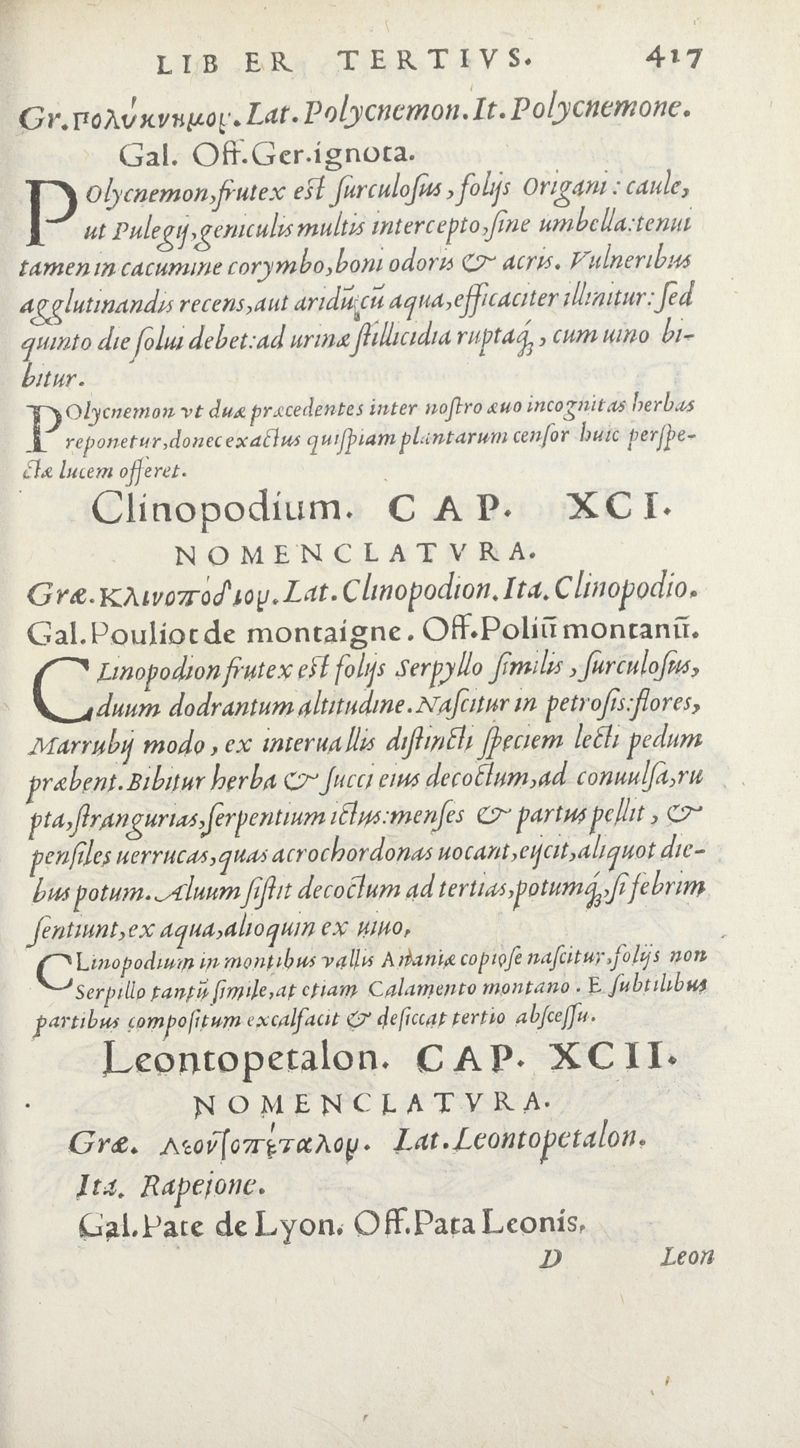 LIBER TERTIVS. 417
Gr. πολύκνημον. Lat. Polycnemon. It. Polycnemone.
Gal. Off. Ger. ignota.
POlycnemon, frutex est surculosus, folijs Origani: caule,
ut Pulegij, geniculis multis intercepto, sine umbella: tenui
tamen in cacumine corymbo, boni odoris & acris. Vulneribus
agglutinandis recens, aut aridũ, cũ aqua, efficaciter illinitur: sed
quinto die solui debet: ad urinæ stillicidia ruptaq́;, cum uino bi-
bitur.
POlycnemon vt duæ præcedentes inter nostro æuo incognitas herbas
reponetur, donec exactus quispiam plantarum censor huic perspe-
ctæ lucem offeret.
Clinopodium. CAP. XCI.
NOMENCLATVRA.
Græ. κλινοπόδιον. Lat. Clinopodion. Ita. Clinopodio.
Gal. Pouliot de montaigne. Off. Poliũ montanũ.
CLinopodion frutex est folijs Serpyllo similis, surculosus,
duum dodrantum altitudine. Nascitur in petrosis: flores,
Marrubij modo, ex interuallis distincti speciem lecti pedum
præbent. Bibitur herba & succi eius decoctum, ad conuulsa, ru
pta, strangurias, serpentium ictus: menses & partus pellit, &
pensiles uerrucas, quas acrochordonas uocant, eijcit, aliquot die-
bus potum. Aluum sistit decoctum ad tertias, potumq́;, si febrim
sentiunt, ex aqua, alioquin ex uino,
CLinopodium in montibus vallis Ananiæ copiose nascitur, folijs non
Serpillo tantũ simile, at etiam Calamento montano. E subtilibus
partibus compositum excalfacit & desiccat tertio abscessu.
Leontopetalon. CAP. XCII.
NOMENCLATVRA.
Græ. λεοντοπέταλον. Lat. Leontopetalon.
Ita. Rapeione.
Gal. Pate de Lyon. Off. Pata Leonis,
D Leon